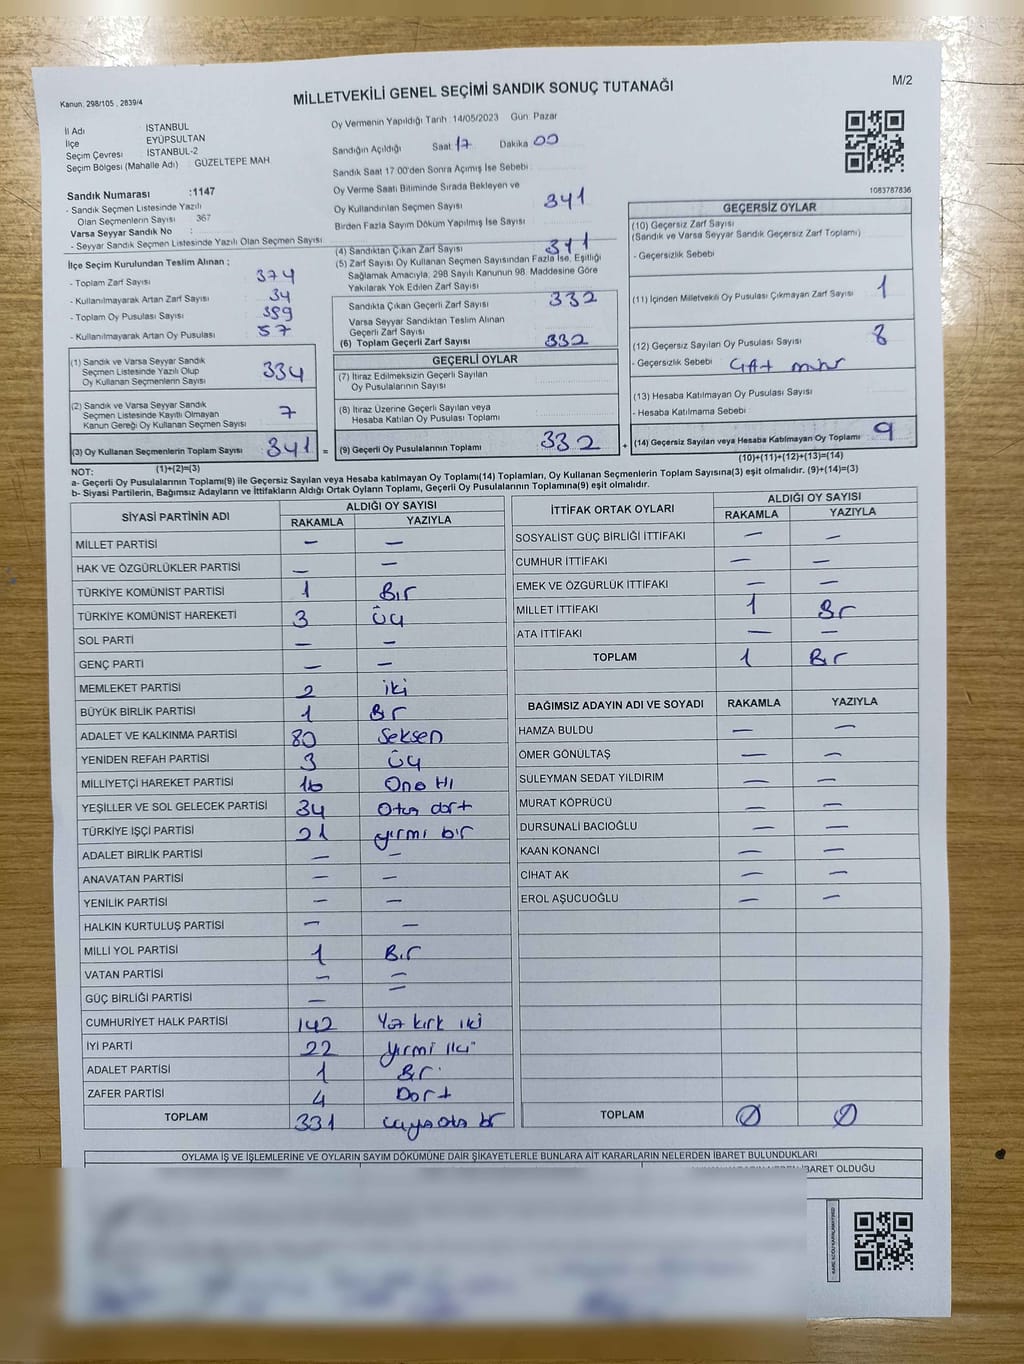 Kanun: 298/105 , 2839/4
MİLLETVEKİLİ GENEL SEÇİMİ SANDIK SONUÇ TUTANAĞI
M/2
İl Adı İSTANBUL
İlçe EYÜPSULTAN
Seçim Çevresi İSTANBUL-2
Seçim Bölgesi (Mahalle Adı) GÜZELTEPE MAH
Sandık Numarası :1147
- Sandık Seçmen Listesinde Yazılı
Olan Seçmenlerin Sayısı 367
Varsa Seyyar Sandık No :
- Seyyar Sandık Seçmen Listesinde Yazılı Olan Seçmen Sayısı
İlçe Seçim Kurulundan Teslim Alınan ;
- Toplam Zarf Sayısı 374
- Kullanılmayarak Artan Zarf Sayısı 34
- Toplam Oy Pusulası Sayısı 399
- Kullanılmayarak Artan Oy Pusulası 57
(1) Sandık ve Varsa Seyyar Sandık
Seçmen Listesinde Yazılı Olup
Oy Kullanan Seçmenlerin Sayısı 334
(2) Sandık ve Varsa Seyyar Sandık
Seçmen Listesinde Kayıtlı Olmayan
Kanun Gereği Oy Kullanan Seçmen Sayısı 7
(3) Oy Kullanan Seçmenlerin Toplam Sayısı 341 =
(1)+(2)=(3)
Oy Vermenin Yapıldığı Tarih 14/05/2023 Gün: Pazar
Sandığın Açıldığı Saat 17 Dakika 00
Sandık Saat 17.00'den Sonra Açımış İse Sebebi
Oy Verme Saati Bitiminde Sırada Bekleyen ve
Oy Kullandırılan Seçmen Sayısı 341
Birden Fazla Sayım Döküm Yapılmış İse Sayısı
(4) Sandıktan Çıkan Zarf Sayısı 341
(5) Zarf Sayısı Oy Kullanan Seçmen Sayısından Fazla İse, Eşitliği
Sağlamak Amacıyla; 298 Sayılı Kanunun 98. Maddesine Göre
Yakılarak Yok Edilen Zarf Sayısı
Sandıkta Çıkan Geçerli Zarf Sayısı 332
Varsa Seyyar Sandıktan Teslim Alınan
Geçerli Zarf Sayısı
(6) Toplam Geçerli Zarf Sayısı 332
GEÇERLİ OYLAR
(7) İtiraz Edilmeksizin Geçerli Sayılan
Oy Pusulalarının Sayısı
(8) İtiraz Üzerine Geçerli Sayılan veya
Hesaba Katılan Oy Pusulası Toplamı
(9) Geçerli Oy Pusulalarının Toplamı 332 +
1083787836
GEÇERSİZ OYLAR
(10) Geçersiz Zarf Sayısı
(Sandık ve Varsa Seyyar Sandık Geçersiz Zarf Toplamı)
- Geçersizlik Sebebi
(11) İçinden Milletvekili Oy Pusulası Çıkmayan Zarf Sayısı 1
(12) Geçersiz Sayılan Oy Pusulası Sayısı 8
- Geçersizlik Sebebi çift mühür
(13) Hesaba Katılmayan Oy Pusulası Sayısı
- Hesaba Katılmama Sebebi
(14) Geçersiz Sayılan veya Hesaba Katılmayan Oy Toplamı 9
(10)+(11)+(12)+(13)=(14)
NOT:
a- Geçerli Oy Pusulalarının Toplamı(9) ile Geçersiz Sayılan veya Hesaba katılmayan Oy Toplamı(14) Toplamları, Oy Kullanan Seçmenlerin Toplam Sayısına(3) eşit olmalıdır. (9)+(14)=(3)
b- Siyasi Partilerin, Bağımsız Adayların ve İttifakların Aldığı Ortak Oyların Toplamı, Geçerli Oy Pusulalarının Toplamına(9) eşit olmalıdır.
SİYASİ PARTİNİN ADI ALDIĞI OY SAYISI
RAKAMLA YAZIYLA
MİLLET PARTİSİ — —
HAK VE ÖZGÜRLÜKLER PARTİSİ — —
TÜRKİYE KOMÜNİST PARTİSİ 1 Bir
TÜRKİYE KOMÜNİST HAREKETİ 3 üç
SOL PARTİ — —
GENÇ PARTİ — —
MEMLEKET PARTİSİ 2 iki
BÜYÜK BİRLİK PARTİSİ 1 Bir
ADALET VE KALKINMA PARTİSİ 80 Seksen
YENİDEN REFAH PARTİSİ 3 üç
MİLLİYETÇİ HAREKET PARTİSİ 16 On altı
YEŞİLLER VE SOL GELECEK PARTİSİ 34 Otuz dört
TÜRKİYE İŞÇİ PARTİSİ 21 yirmi bir
ADALET BİRLİK PARTİSİ — —
ANAVATAN PARTİSİ — —
YENİLİK PARTİSİ — —
HALKIN KURTULUŞ PARTİSİ — —
MİLLİ YOL PARTİSİ 1 Bir
VATAN PARTİSİ — —
GÜÇ BİRLİĞİ PARTİSİ — —
CUMHURİYET HALK PARTİSİ 142 Yüz kırk iki
İYİ PARTİ 22 yirmi iki
ADALET PARTİSİ 1 Bir
ZAFER PARTİSİ 4 Dört
TOPLAM 331 üçyüzotuz bir
İTTİFAK ORTAK OYLARI ALDIĞI OY SAYISI
RAKAMLA YAZIYLA
SOSYALİST GÜÇ BİRLİĞİ İTTİFAKI — —
CUMHUR İTTİFAKI — —
EMEK VE ÖZGÜRLÜK İTTİFAKI — —
MİLLET İTTİFAKI 1 Bir
ATA İTTİFAKI — —
TOPLAM 1 Bir
BAĞIMSIZ ADAYIN ADI VE SOYADI RAKAMLA YAZIYLA
HAMZA BULDU — —
ÖMER GÖNÜLTAŞ — —
SÜLEYMAN SEDAT YILDIRIM — —
MURAT KÖPRÜCÜ — —
DURSUNALİ BACIOĞLU — —
KAAN KONANCI — —
CİHAT AK — —
EROL AŞUCUOĞLU — —
TOPLAM 0 0
OYLAMA İŞ VE İŞLEMLERİNE VE OYLARIN SAYIM DÖKÜMÜNE DAİR ŞİKAYETLERLE BUNLARA AİT KARARLARIN NELERDEN İBARET BULUNDUKLARI
İBARET OLDUĞU